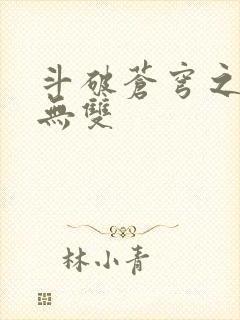 斗破蒼穹之
無雙
林小青